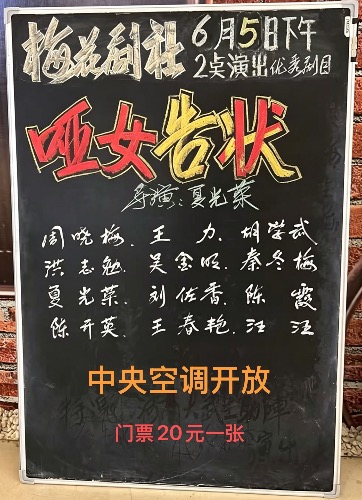 梅花剧社
6月5日下午
2点演出优秀剧目
哑女告状
导演:夏光荣
周晓梅、王 力、胡学武
洪志勉、吴金明、秦冬梅
夏光荣、刘佐香、陈 霞
陈开英、王春艳、汪 汪
中央空调开放
门票20元一张